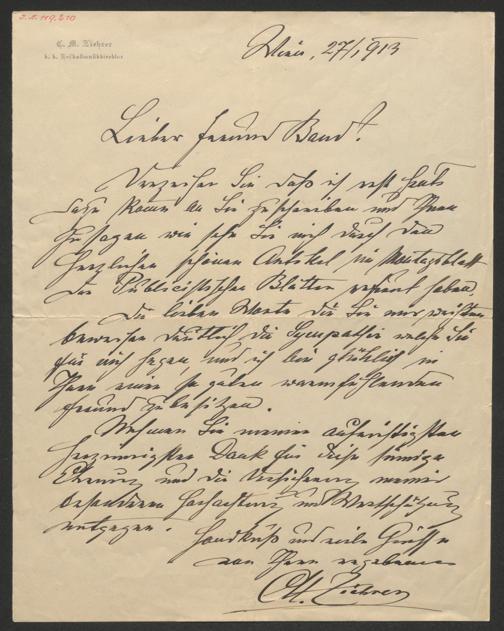 I.N. 119.210
C. M. Ziehrer
k. k. Hofballmusikdirektor
Wien, 27/1 913
Lieber Freund Band!
Verzeihen Sie daß ich erst heute
dazu komme an Sie zu schreiben und Ihnen
zu sagen wie sehr Sie mich durch den
herzlichen schönen Artikel im Montagsblatt
der Publicistischen Blätter erfreut haben.
Die lieben Worte die Sie mir weihten
beweisen deutlich die Sympathie welche Sie
für mich hegen, und ich bin glücklich in
Ihnen einen so guten warmfühlenden
Freund zu besitzen.
Nehmen Sie meinen aufrichtigsten
herzinnigsten Dank für diese sinnige
Ehrung und die Versicherung meiner
besonderen Hochachtung und Wertschätzung
entgegen.
Handkuß und viele Grüße
von Ihrem ergebenen
CM. Ziehrer